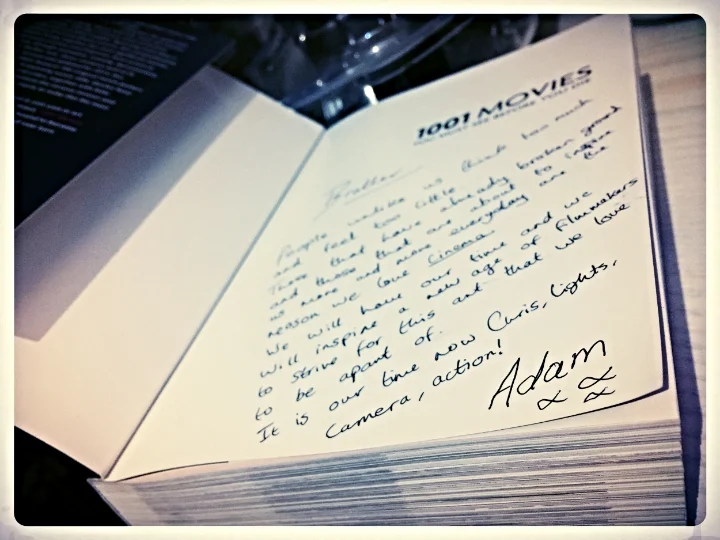 1001 MOVIES
YOU MUST SEE BEFORE YOU DIE
Brother
People unlike us think too much
and feel too little
Those that have already broken ground
and those that are about to inspire
us more and more everyday are the
reason we love Cinema
We will have our time and we
will inspire a new age of filmmakers
to strive for this art that we love
to be apart of.
It is our time now Chris, Lights,
Camera, action!
Adam
x x
x